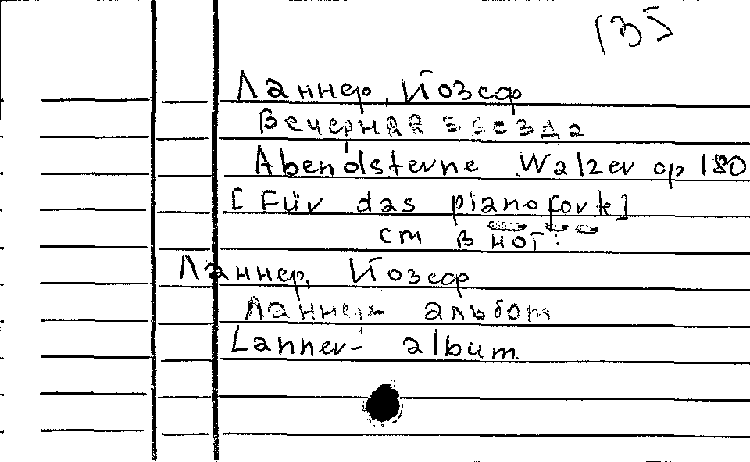 135
Ланнер, Йозеф
Вечерняя звезда
Abendsterne Walzer op 180
[Für das pianoforte]
см в нот:
Ланнер, Йозеф
Ланнер- альбом
Lanner- album